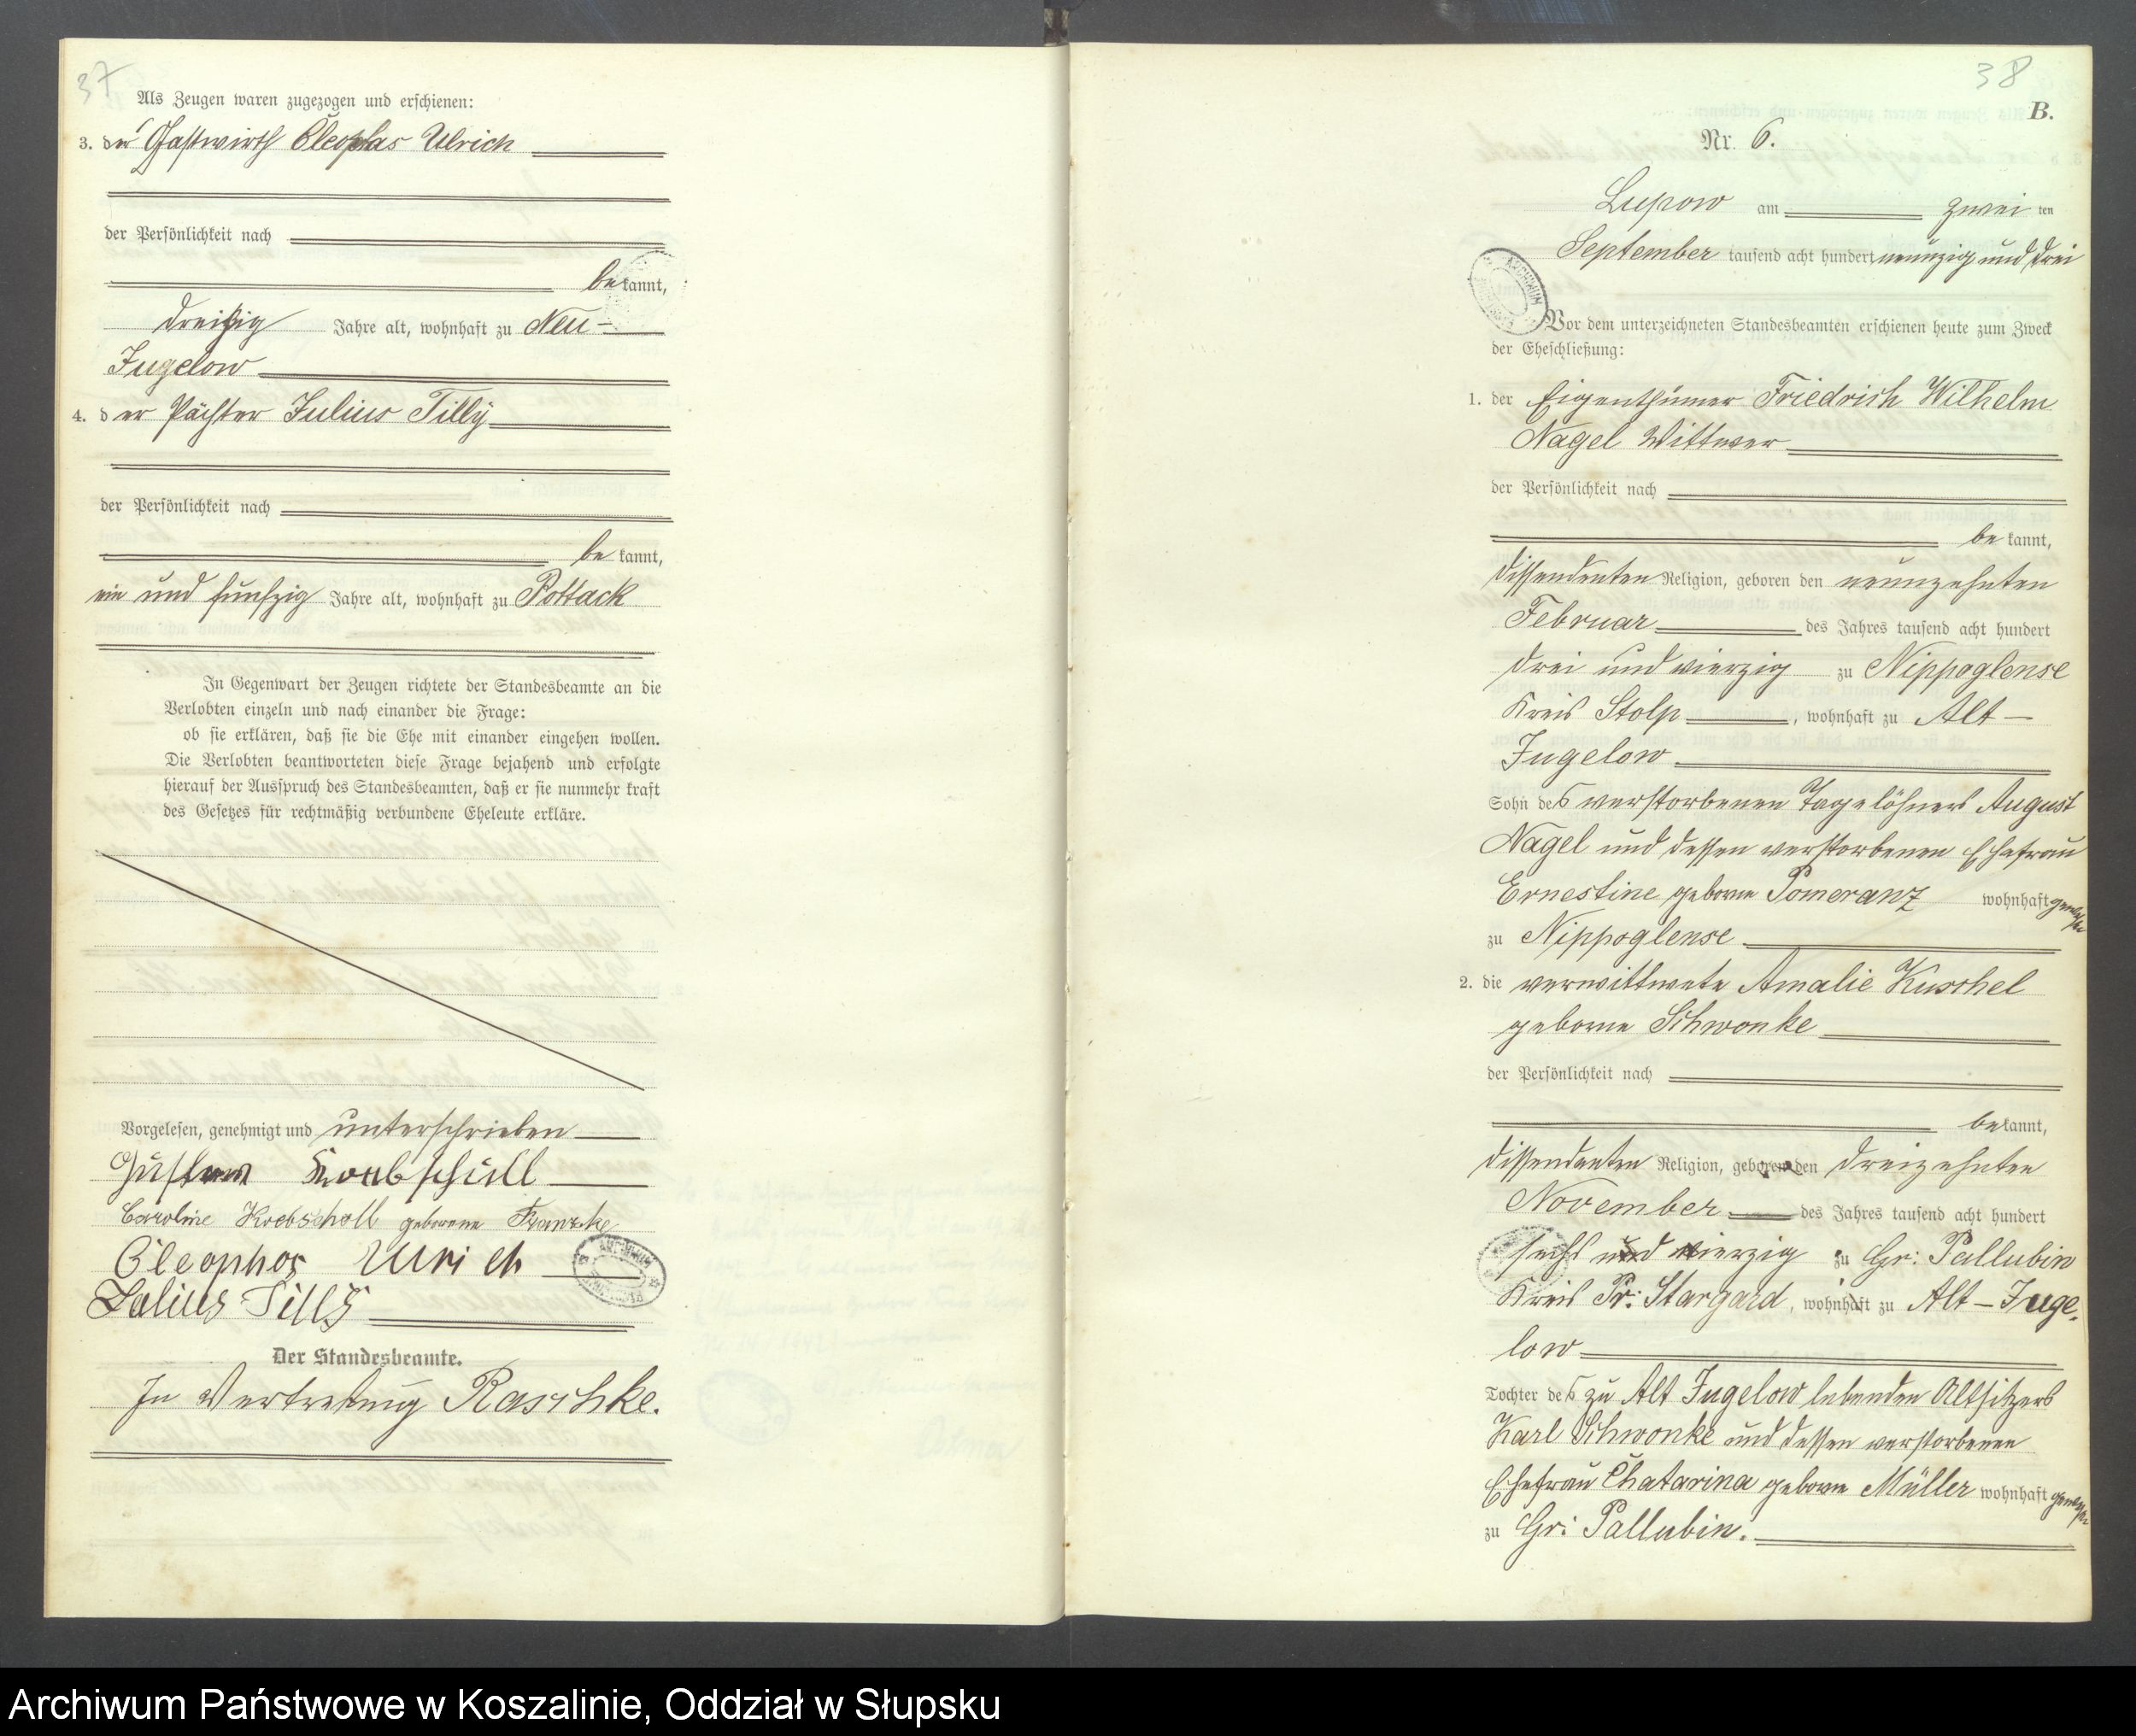 37
Als Zeugen waren zugezogen und erschienen:
3. der Gastwirth Cleophas Ulrich
der Persönlichkeit nach
be kannt,
dreißig Jahre alt, wohnhaft zu Neu-
Jugelow
4. der Pächter Julius Tilly
der Persönlichkeit nach
be kannt,
ein und fünfzig Jahre alt, wohnhaft zu Pottack
In Gegenwart der Zeugen richtete der Standesbeamte an die
Verlobten einzeln und nach einander die Frage:
ob sie erklären, daß sie die Ehe mit einander eingehen wollen.
Die Verlobten beantworteten diese Frage bejahend und erfolgte
hierauf der Ausspruch des Standesbeamten, daß er sie nunmehr kraft
des Gesetzes für rechtmäßig verbundene Eheleute erkläre.
Vorgelesen, genehmigt und unterschrieben
Gustav Krebschull
Caroline Krebscholl geborene Franzke
Cleophos Ulrich
Julius Tilly
Der Standesbeamte.
In Vertretung Raschke.
38
B.
Nr. 6.
Lupow am zwei ten
September tausend acht hundert neunzig und drei
Vor dem unterzeichneten Standesbeamten erschienen heute zum Zweck
der Eheschließung:
1. der Eigenthümer Friedrich Wilhelm
Nagel Wittwer
der Persönlichkeit nach
be kannt,
dissendenten Religion, geboren den neunzehnten
Februar des Jahres tausend acht hundert
drei und vierzig zu Nippoglense
Kreis Stolp, wohnhaft zu Alt-
Jugelow
Sohn des verstorbenen Tagelöhners August
Nagel und dessen verstorbenen Ehefrau
Ernestine geborne Pomeranz wohnhaft gewesen
zu Nippoglense
2. die verwittwete Amalie Kuschel
geborne Schwonke
der Persönlichkeit nach
bekannt,
dissendenten Religion, geboren den dreizehnten
November des Jahres tausend acht hundert
sechs und vierzig zu Gr: Pallubin
Kreis Pr: Stargard, wohnhaft zu Alt-Juge-
low
Tochter des zu Alt Jugelow lebenden Altsitzers
Karl Schwonke und dessen verstorbenen
Ehefrau Chatarina geborne Müller wohnhaft gewesen
zu Gr: Pallubin.
Archiwum Państwowe w Koszalinie, Oddział w Słupsku